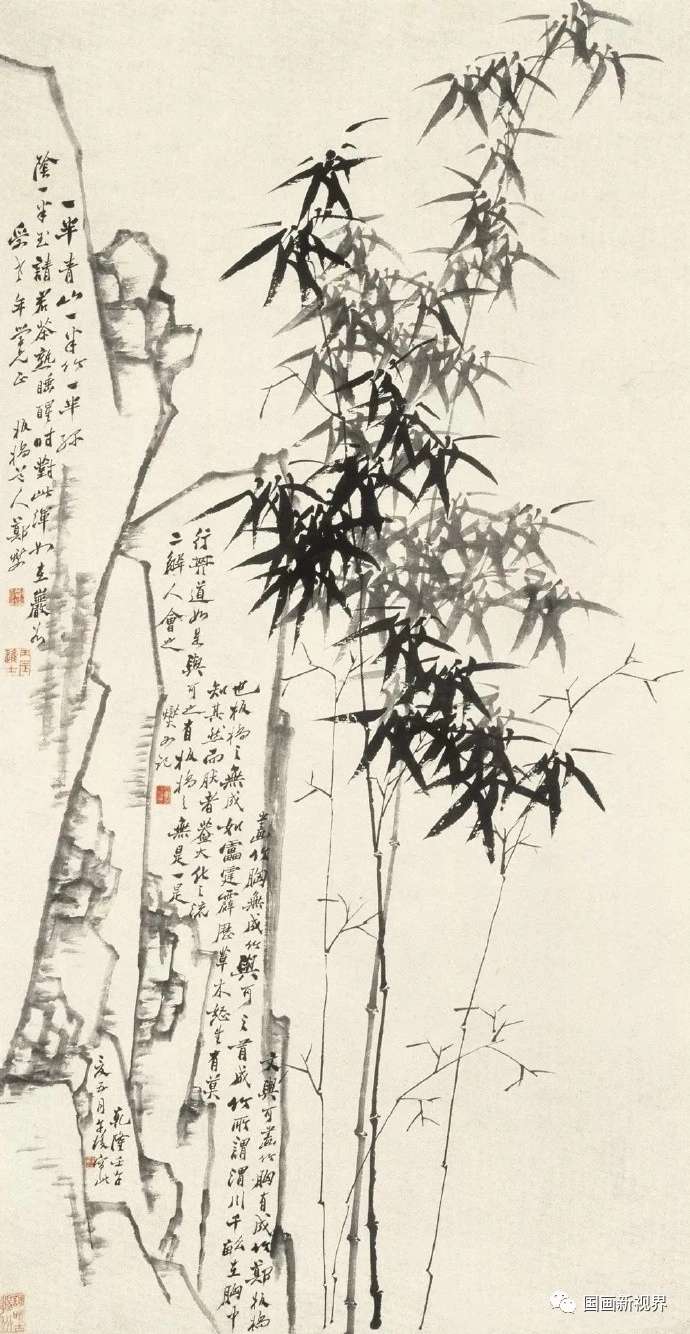 一半青山一半竹一半綠
陰一半玉請君茶熟睡醒時對此渾如在巖谷
年學兄正 板橋老人鄭燮
文與可畫竹胸有成竹鄭板橋
畫竹胸無成竹與可之有成竹所謂渭川千畝在胸中
也板橋之無成如雷霆霹歷草木怒生有莫
知其然而然者蓋大化之流
行其道如是與可之有板橋之無是一是
二解人會之
燮又記
乾隆壬午
夏五月午後寫此
国画新视界